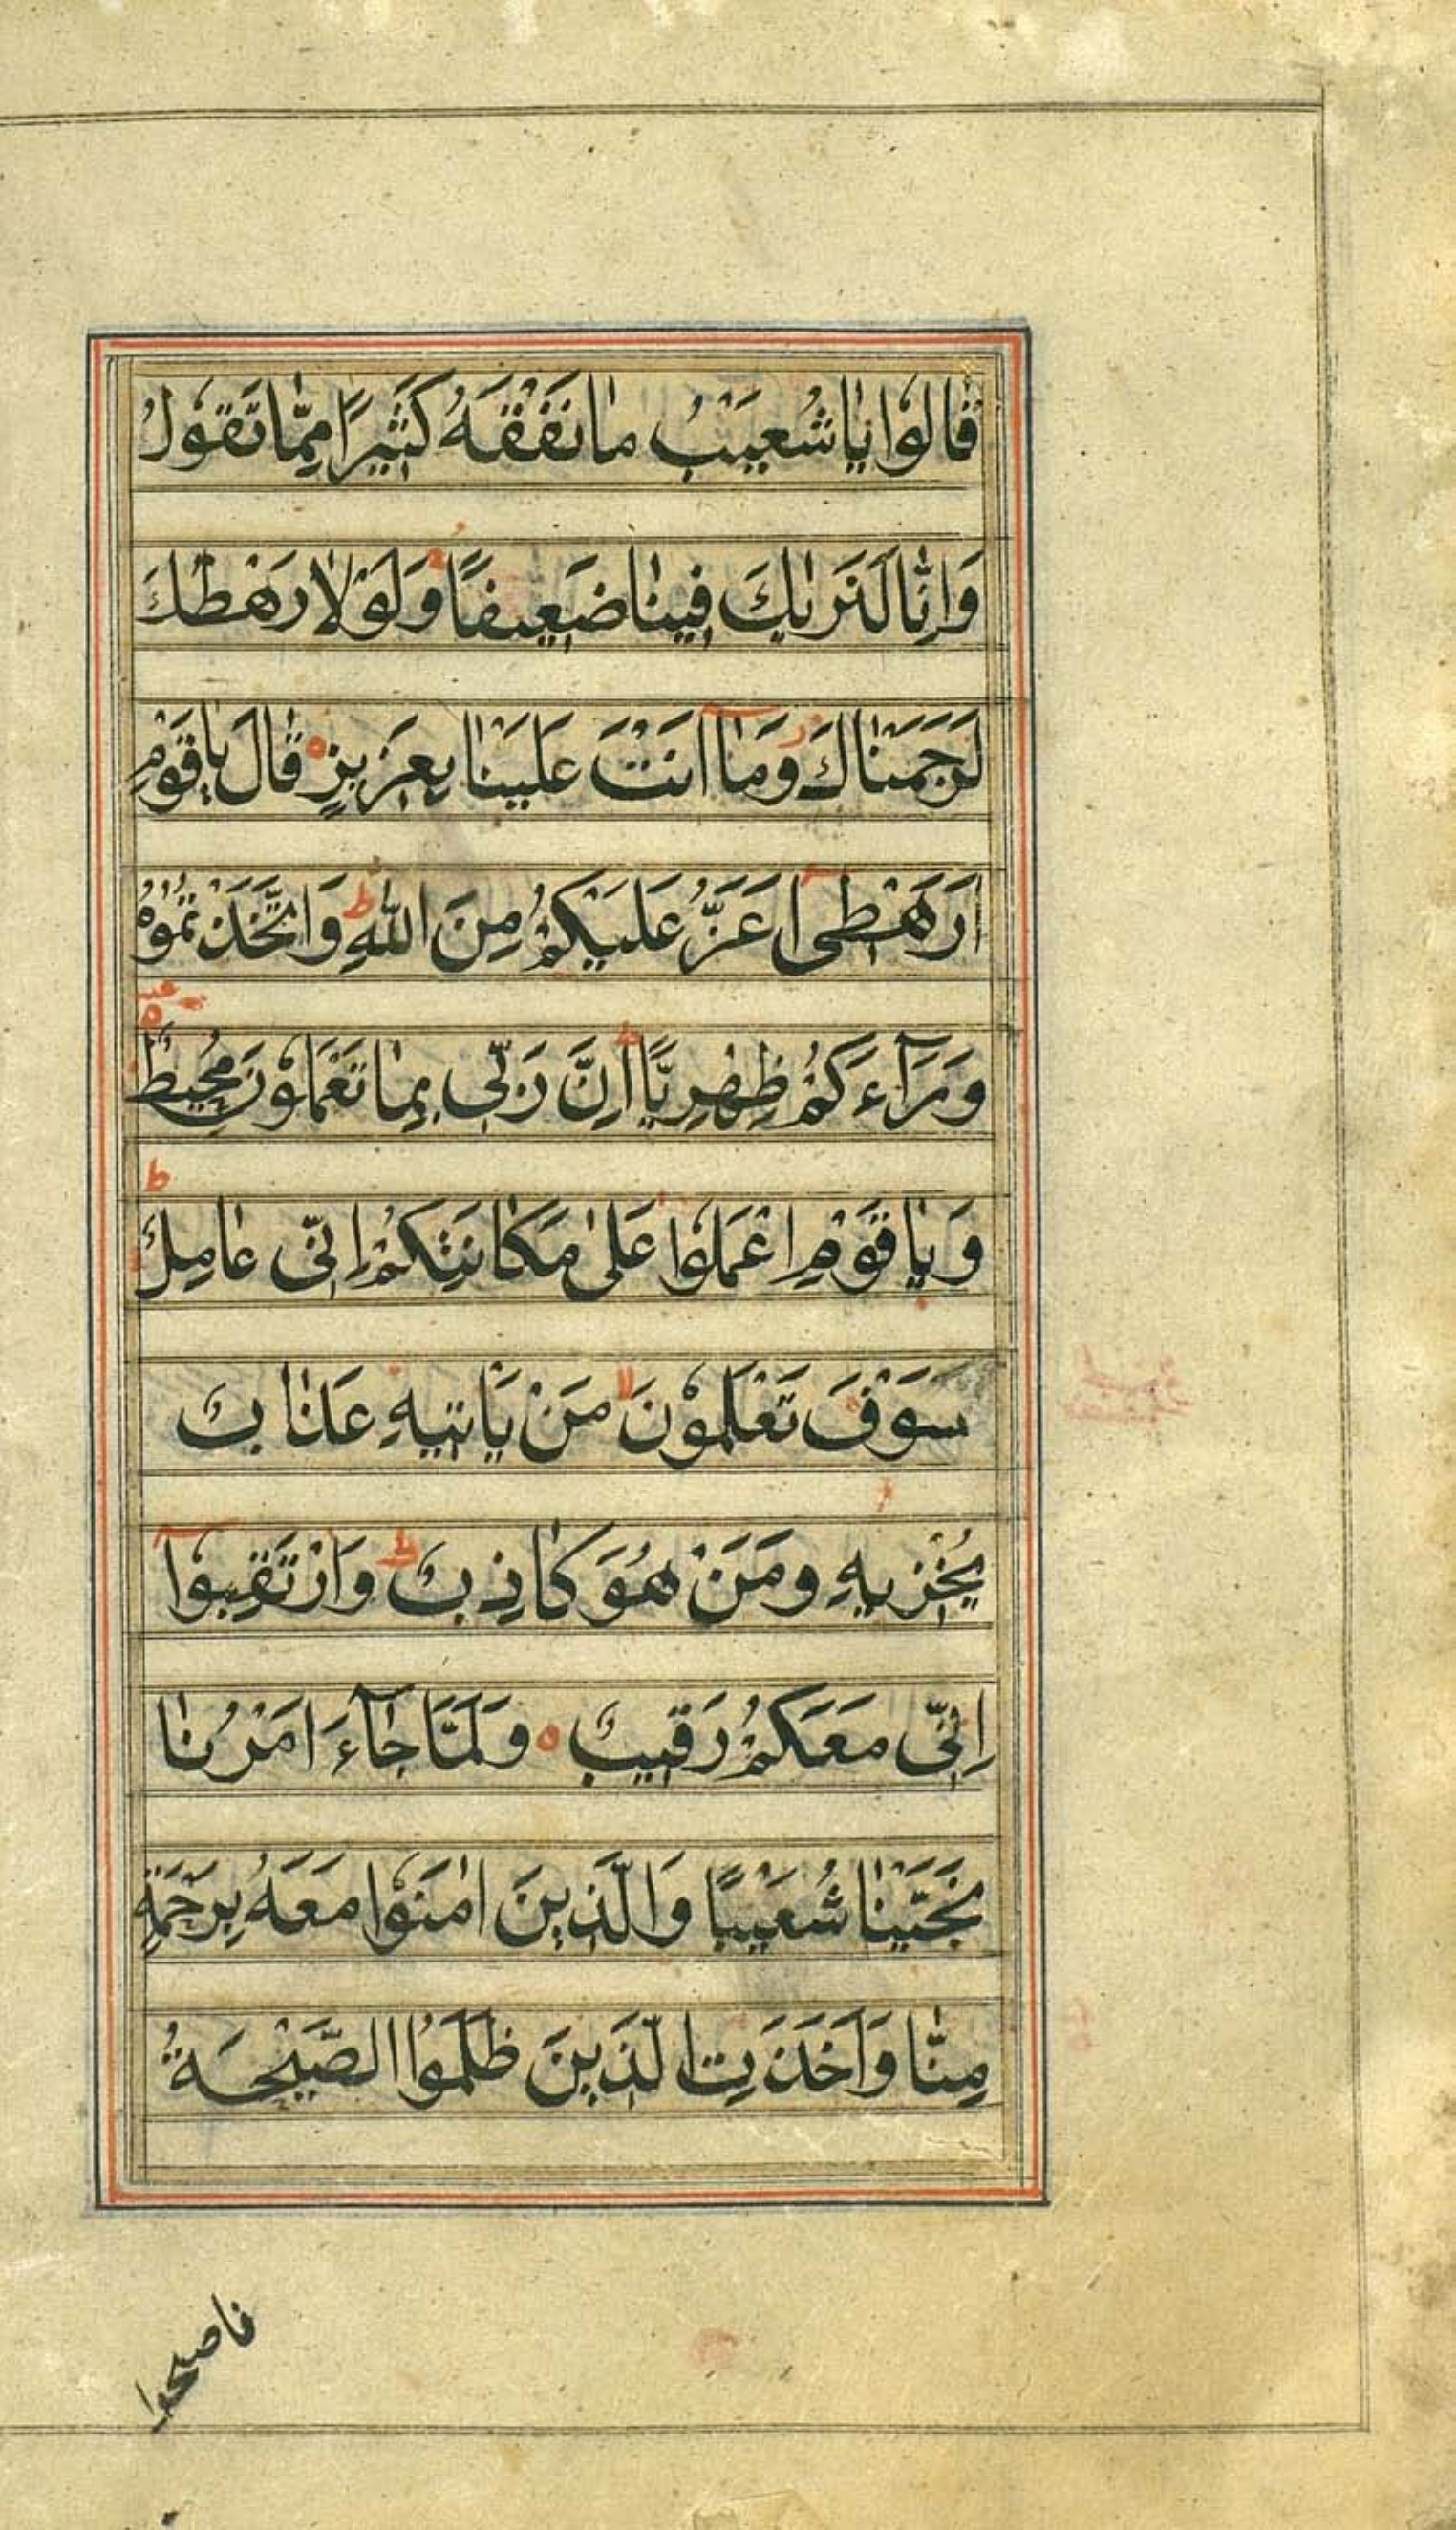 قَالُوا يَا شُعَيْبُ مَا نَفْقَهُ كَثِيرًا مِمَّا تَقُولُ
وَإِنَّا لَنَرَىٰكَ فِينَا ضَعِيفًا وَلَوْلَا رَهْطُكَ
لَرَجَمْنَاكَ وَمَا أَنْتَ عَلَيْنَا بِعَزِيزٍ قَالَ يَا قَوْمِ
أَرَهْطِي أَعَزُّ عَلَيْكُمْ مِنَ اللَّهِ وَاتَّخَذْتُمُوهُ
وَرَآءَكُمْ ظِهْرِيًّا إِنَّ رَبِّي بِمَا تَعْمَلُونَ مُحِيطٌ
وَيَا قَوْمِ اعْمَلُوا عَلَىٰ مَكَانَتِكُمْ إِنِّي عَامِلٌ
سَوْفَ تَعْلَمُونَ مَنْ يَأْتِيهِ عَذَابٌ
يُخْزِيهِ وَمَنْ هُوَ كَاذِبٌ وَارْتَقِبُوا
إِنِّي مَعَكُمْ رَقِيبٌ وَلَمَّا جَآءَ أَمْرُنَا
نَجَّيْنَا شُعَيْبًا وَالَّذِينَ اٰمَنُوا مَعَهُ بِرَحْمَةٍ
مِنَّا وَأَخَذَتِ الَّذِينَ ظَلَمُوا الصَّيْحَةُ
فاصبحوا